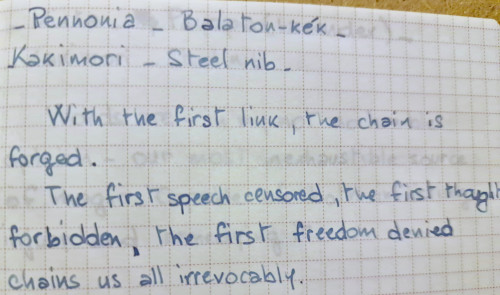 - Pennonia - Balaton-kék -
Kakimori - Steel nib -
With the first link, the chain is
forged.
The first speech censored, the first thought
forbidden, the first freedom denied
chains us all irrevocably.